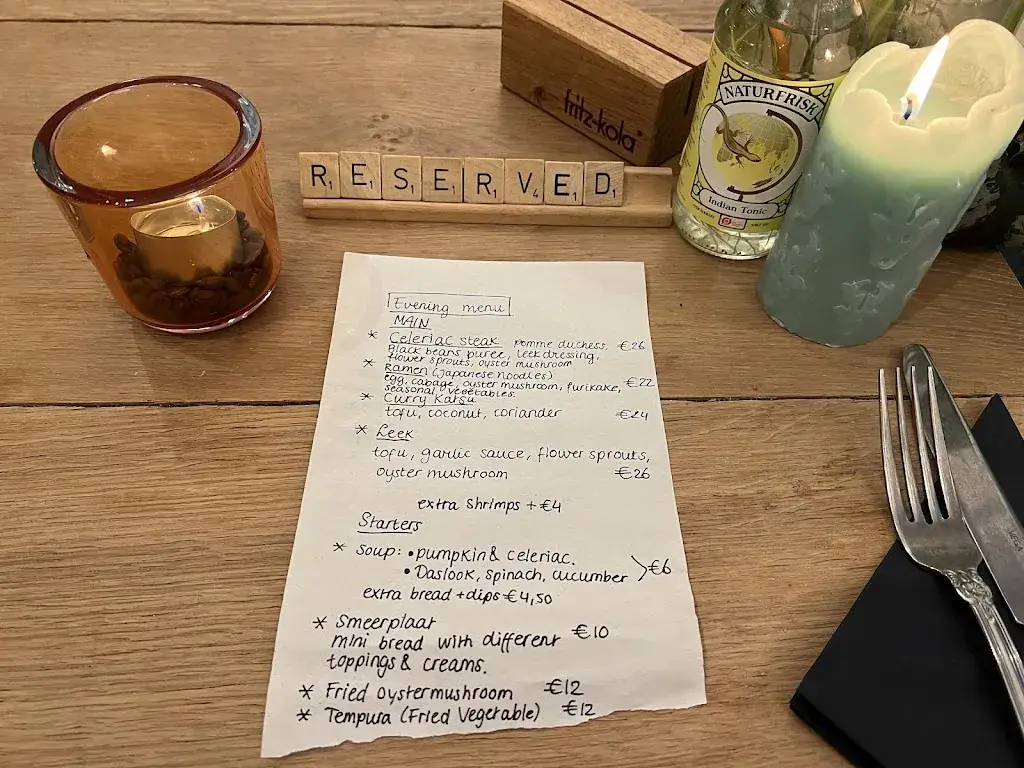 fritz-kola
NATURFRISK
Indian Tonic
R1 E1 S1 E1 R1 V4 E1 D1
Evening menu
MAIN
* Celeriac steak pomme duchess, €26
Black beans puree, leek dressing,
flower sprouts, oyster mushroom
* Ramen (Japanese noodles)
egg, cabage, oyster mushroom, furikake, €22
seasonal vegetables.
* Curry Katsu
tofu, coconut, coriander €24
* Leek
tofu, garlic sauce, flower sprouts,
oyster mushroom €26
extra shrimps + €4
Starters
* soup: • pumpkin & celeriac.
• Daslook, spinach, cucumber €6
extra bread + dips €4,50
* Smeerplaat
mini bread with different €10
toppings & creams.
* Fried oystermushroom €12
* Tempura (Fried Vegetable) €12